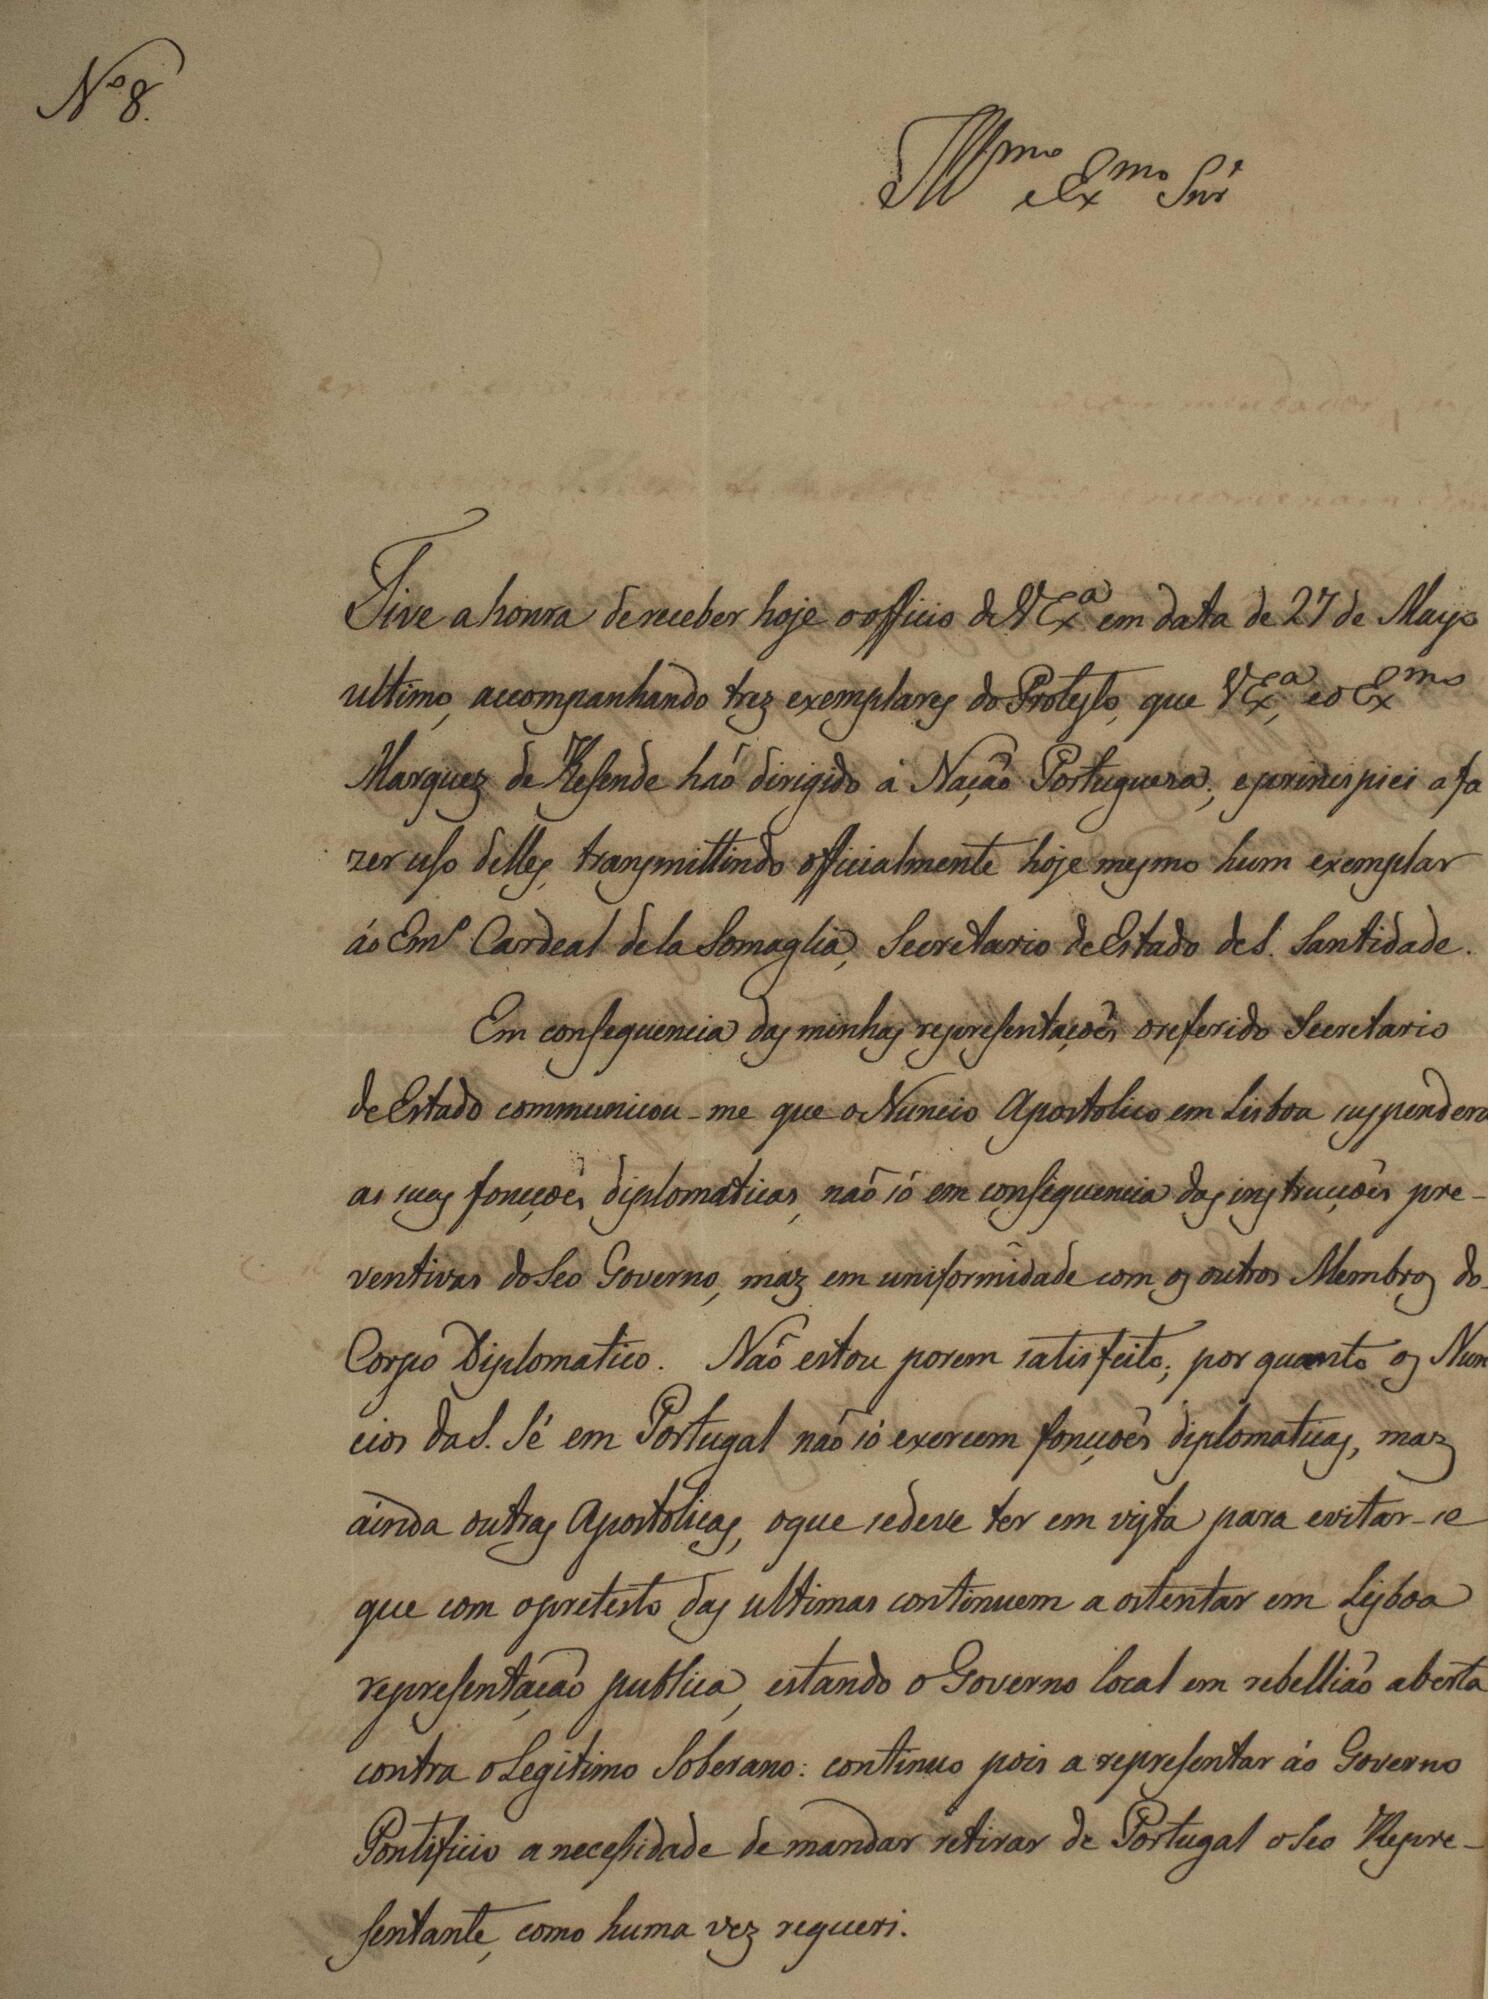 Nº 8.
Illmo e Exmo Snr
Tive a honra de receber hoje o officio de V Exª em data de 27 de Mayo
ultimo, accompanhando trez exemplares do Protesto, que V Exª, e o Exmo
Marquez de Resende háo dirigido á Nação Portugueza; e principiei a fa
zer uso delles, transmittindo officialmente hoje mesmo hum exemplar
áo Emº Cardeal de la Somaglia, Secretario de Estado de S. Santidade.
Em consequencia das minhas representações o referido Secretario
de Estado communicou-me que o Nuncio Apostolico em Lisboa suspendera
as suas foncções diplomaticas, não só em consequencia das instrucções pre-
ventivas do Seo Governo, maz em uniformidade com os outros Membros do
Corpo Diplomatico. Não estou porem satisfeito; por quanto os Nun
cios da S. Sé em Portugal não só exercem foncções diplomaticas, maz
áinda outras Apostolicas, o que se deve ter em vista para evitar-se
que com o pretesto das ultimas continuem a ostentar em Lisboa
representação publica, estando o Governo local em rebellião aberta
contra o Legitimo Soberano: continuo pois a representar áo Governo
Pontificio a necessidade de mandar retirar de Portugal o Seo Repre-
sentante, como huma vez requeri.